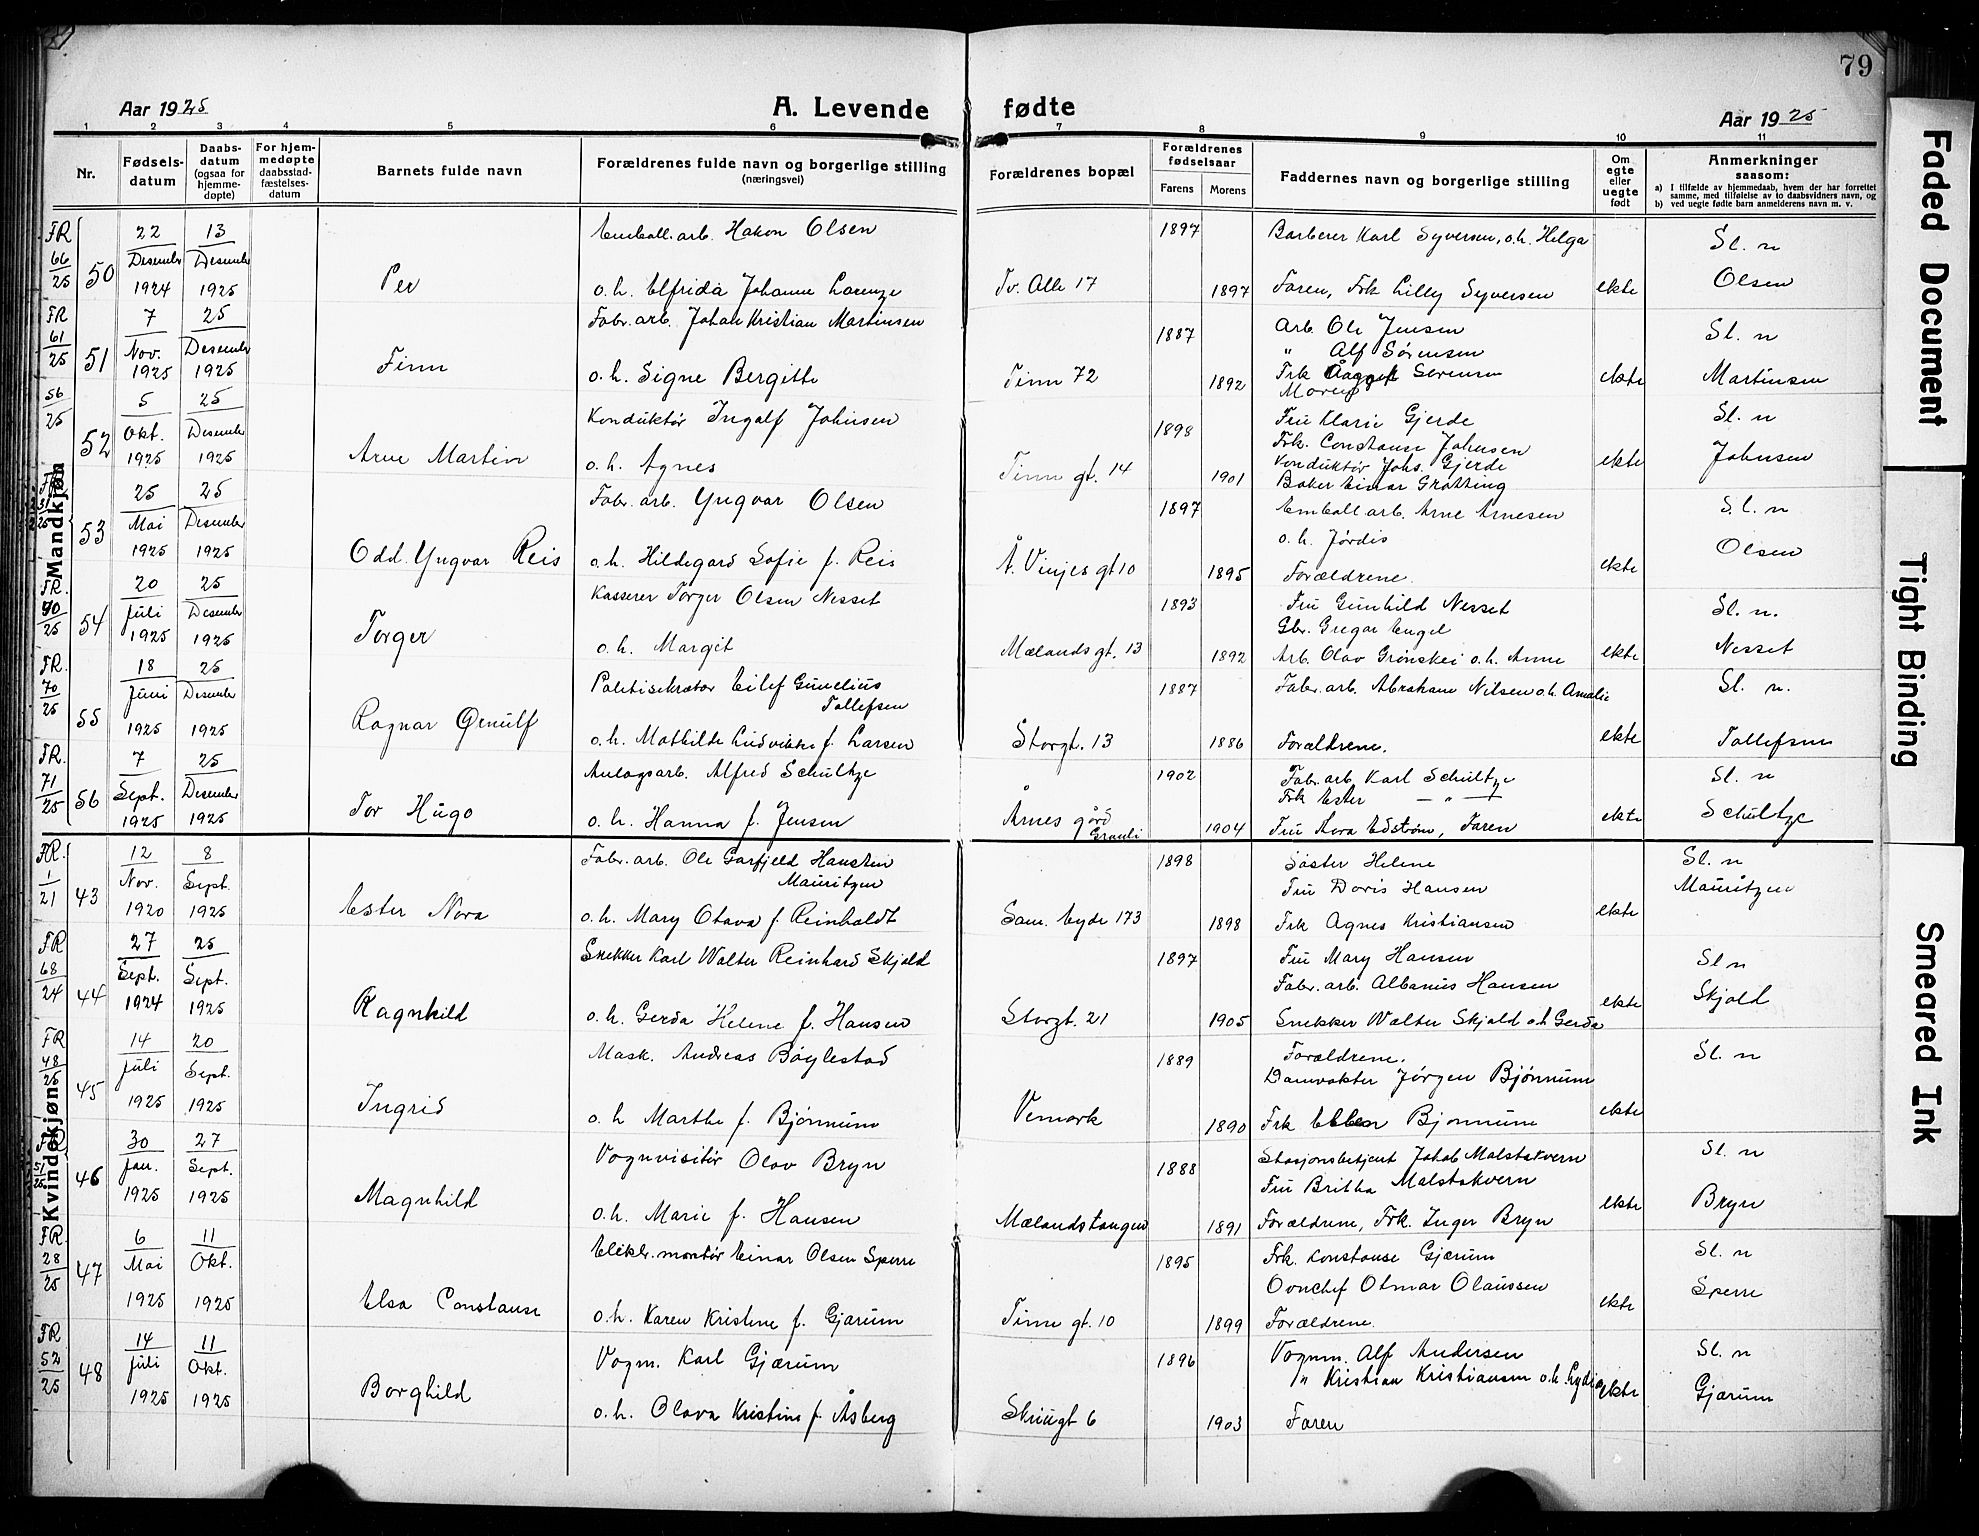 79
Aar 1925
A. Levende fødte
Aar 1925
1 2 3 4 5 6 7 8 9 10 11
Nr.
Fødsels-datum
Daabs-datum (ogsaa for hjemme-døpte)
For hjem-medøpte daabsstad-fæstelses-datum
Barnets fulde navn
Forældrenes fulde navn og borgerlige stilling
(næringsvei)
Forældrenes bopæl
Forældrenes fødselsaar
Farens Morens
Faddernes navn og borgerlige stilling
Om egte eller uegte født
Anmerkninger
saasom:
a) I tilfælde av hjemmedaab, hvem der har forrettet samme, med tilføielse av to daabsvidners navn, og
b) ved uegte fødte barn anmelderens navn m. v.
Mandkjøn
FR 66/25 50 22 Desember 1924 13 Desember 1925 Per
Emball. arb. Hakon Olsen
o. h. Elfrida Johanne Lorenze
Tv. Alle 17 1897 1897
Barberer Karl Syversen, o.h. Helga
Faren, Frk Lilly Syversen
ekte Sl. n Olsen
FR 61/25 51 7 Nov. 1925 25 Desember 1925 Finn
Fabr. arb. Johan Kristian Martinsen
o. h. Signe Bergitte
Tinn 72 1887 1892
Arb. Ole Jensen
" Alf Sørensen
Frk Aagot Sørensen
Moren
ekte Sl. n Martinsen
56/25 52 5 Okt. 1925 25 Desember 1925 Arne Martin
Konduktør Ingolf Johnsen
o. h. Agnes
Tinn gt. 14 1898 1901
Fru Marie Gjerde
Frk. Constanse Johnsen
Konduktør Johs. Gjerde
Baker Einar Grøtting
ekte Sl. n Johnsen
FR 53 25 Mai 1925 25 Desember 1925 Odd Yngvar Reis
Fabr. arb. Yngvar Olsen
o. h. Hildegard Sofie f. Reis
Å. Vinjes gt 10 1897 1895
Emball arb. Arne Arnesen
o. h. Jørdis
Forældrene.
ekte S.l. n Olsen
FR. 70/25 54 20 Juli 1925 25 Desember 1925 Torger
Kasserer Torger Olsen Nesset
o. h. Margit
Mælandsgt. 13 1893 1892
Fru Gunhild Nesset
Gbr. Gregar Engel
Arb. Olav Grønskei o. h. Anne
ekte Sl. n. Nesset
FR. 70/25 55 18 Juni 1925 25 Desember 1925 Ragnar Ørnulf
Politisekretær Eilef Gunelius Tollefsen
o. h. Mathilde Ludvikke f. Larsen
Storgt. 13 1887 1886
Fabr. arb. Abraham Nilsen o.h. Amalie
Forældrene.
ekte Sl. n. Tollefsen
FR. 71/25 56 7 Sept. 1925 25 Desember 1925 Tor Hugo
Anlagsarb. Alfred Schultze
o. h. Hanna f. Jensen
Årnes gård Grauli 1902 1904
Fab. arb. Karl Schultze
Frk Ester — " —
Fru Aora Edstrøm, Faren
ekte Sl. n Schultze
Kvindekjøn
FR. 1/21 43 12 Nov. 1920 8 Sept. 1925 Ester Nora
Fabr. arb. Ole Garfjeld Haustein Mauritzen
o. h. Mary Otava f. Reinholdt
Sam. Eyde 173 1898 1898
Søster Helene
Fru Doris Hansen
Frk Agnes Kristiansen
ekte Sl. n Mauritzen
FR 68/24 44 27 Sept. 1924 25 Sept. 1925 Ragnhild
Snekker Karl Walter Reinhard Skjold
o. h. Gerda Helene f. Hansen
Storgt. 21 1897 1905
Fru Mary Hansen
Fabr. arb. Albanius Hansen
Snekker Walter Skjold o.h Gerda
ekte Sl n Skjold
FR 48/25 45 14 Juli 1925 20 Sept. 1925 Ingrid
Mask. Andreas Bøylestad
o. h Marthe f. Bjønnum
Vemork 1889 1890
Forældrene.
Damvokter Jørgen Bjønnum
Frk Ellen Bjønnum
ekte Sl. n
FR 51/25 46 30 Jan. 1925 27 Sept. 1925 Magnhild
Vognvisitør Olav Bryn
o. h. Marie f. Hansen
Mælandstangen 1888 1891
Stasjonsbetjent Jakob Malstakvern
Fru Britha Malstakvern
Forældrene, Frk. Inger Bryn
ekte Sl. n Bryn
FR. 28/25 47 6 Mai 1925 11 Okt. 1925 Elsa Constanse
Elektr. montør Einar Olsen Sperre
o. h. Karen Kristine f. Gjærum
Tinn gt. 10 1895 1899
Frk. Konstanse Gjærum
Ovnchef Otmar Olaussen
Forældrene.
ekte Sl. n Sperre
FR 52/25 48 14 Juli 1925 11 Okt. 1925 Borghild
Vogm. Karl Gjærum
o. h. Olava Kristine f. Åsberg
Skriugt 6 1896 1903
Vognm. Alf Andersen
" Kristian Kristiansen o.h. Lydia
Faren
ekte Sl. n Gjærum
Faded Document
Tight Binding
Smeared Ink